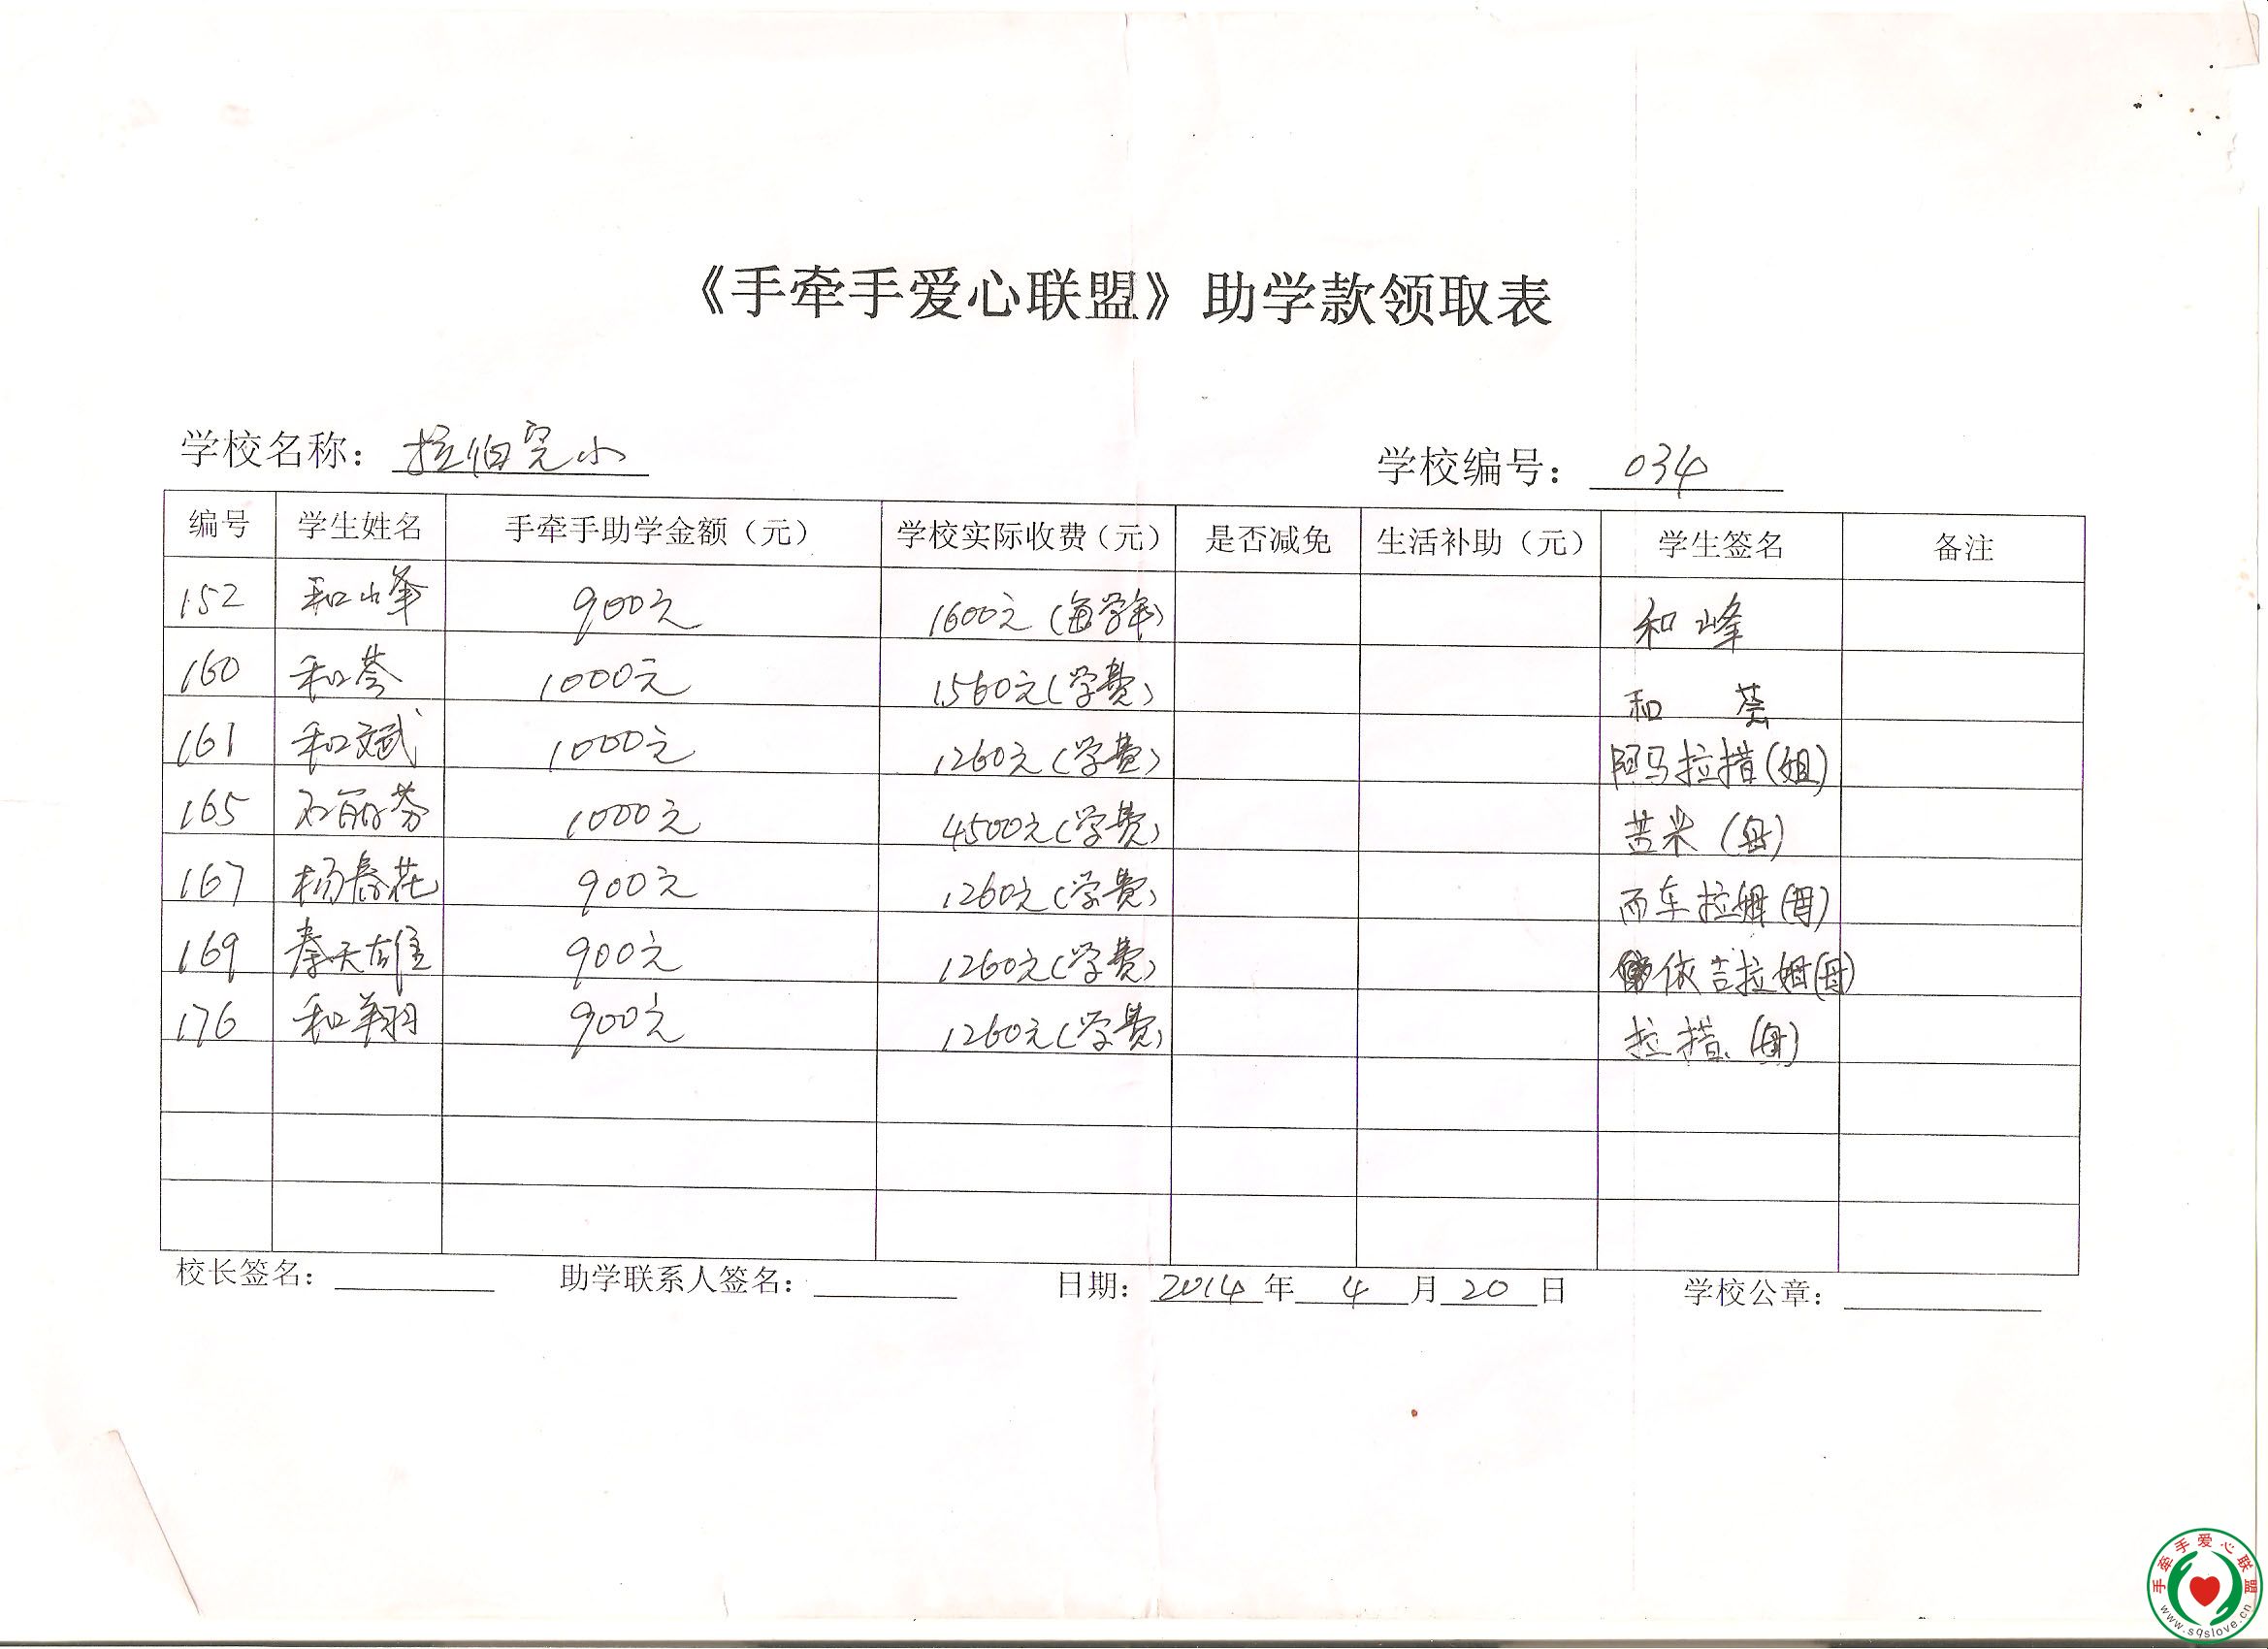 《手牵手爱心联盟》助学款领取表
学校名称：拉伯完小 学校编号：034
编号 学生姓名 手牵手助学金额（元） 学校实际收费（元） 是否减免 生活补助（元） 学生签名 备注
152 和峰 900元 1600元（每学年） 和峰
160 和 1000元 1560元（学费） 和
161 和斌 1000元 1260元（学费） 阿马拉措（姐）
165 石丽芬 1000元 4500元（学费） 苦米（母）
167 杨春花 900元 1260元（学费） 而车拉姆（母）
169 秦天雄 900元 1260元（学费） 依吉拉姆（母）
176 和翔 900元 1260元（学费） 拉措（母）
校长签名： 助学联系人签名： 日期：2014年4月20日 学校公章：
手牵手爱心联盟
www.sqslove.cn